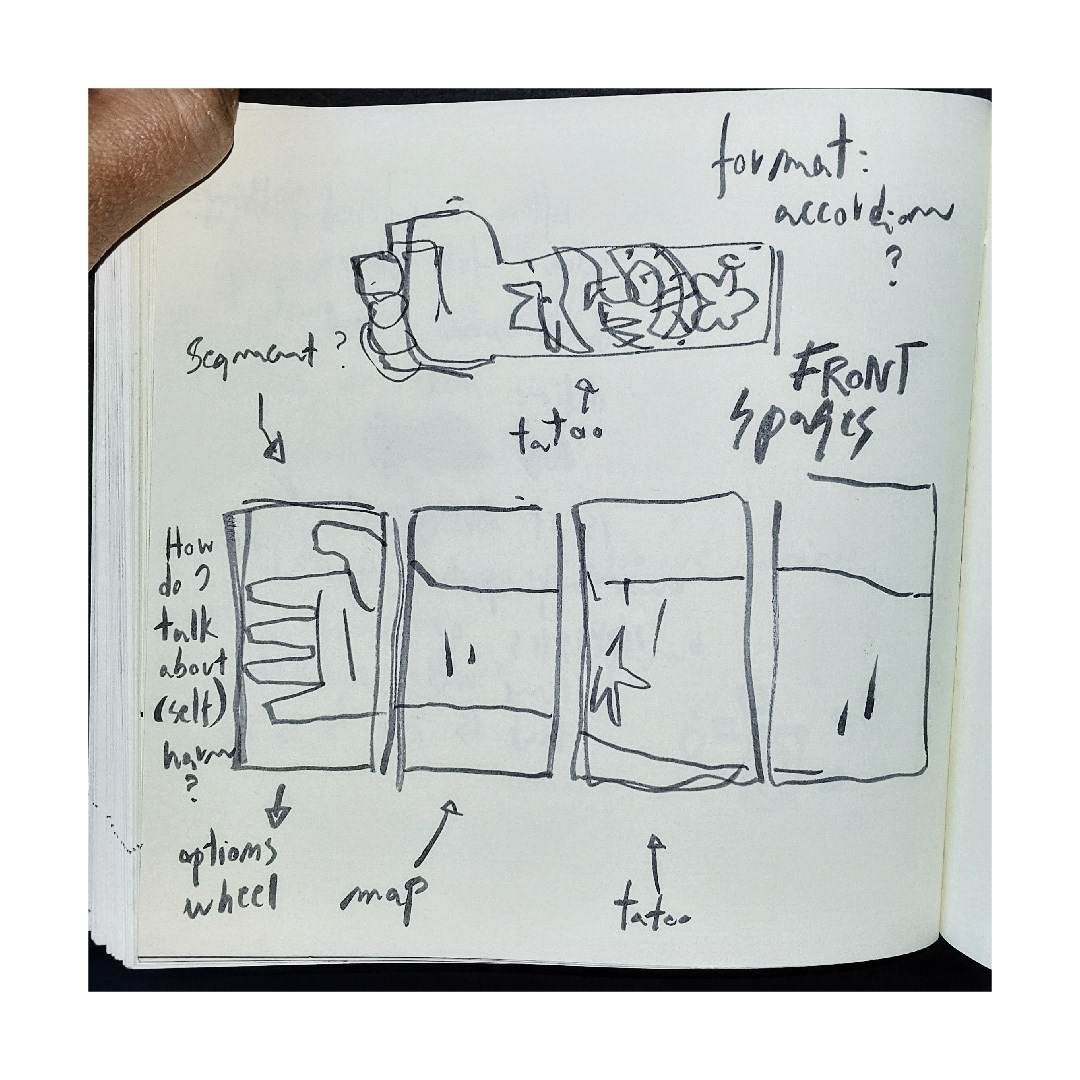 format:
accordion
?
Segment ?
tatoo
FRONT
4 pages
How
do ?
talk
about
(self)
harm
?
options
wheel
map
tatoo